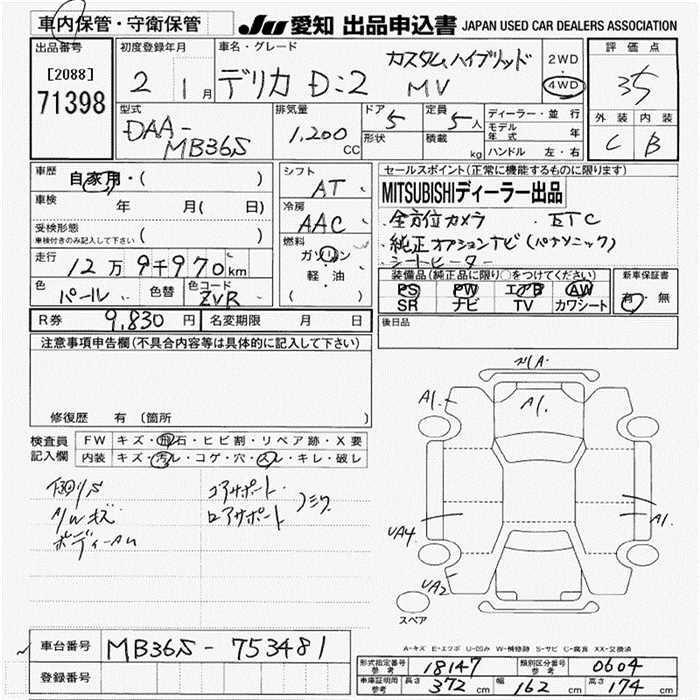 車内保管・守衛保管
JU 愛知 出品申込書 JAPAN USED CAR DEALERS ASSOCIATION
出品番号
[2088]
71398
初度登録年月
2 1月
車名・グレード
デリカ D:2
カスタムハイブリッド
MV
2WD
4WD
評価点
3.5
外装 内装
C B
型式
DAA-
MB36S
排気量
1,200
CC
ドア 5
形状
定員 5人
積載 kg
ディーラー・並行
モデル年式 年
ハンドル 左・右
車歴
自家用・( )
車検 年 月( 日)
受検形態
車検付きのみ記入して下さい ( )
走行
12万9千970km
色 パール 色替 色コード ZVR
シフト
AT
冷房
AAC
燃料
ガソリン
軽・油
( )
セールスポイント(正常に機能するものに限り)
MITSUBISHIディーラー出品
・全方位カメラ ・ETC
・純正オプションナビ(パナソニック)
・シートヒーター
装備品(純正品に限り○をつけてください)
PS PW エアB AW
SR ナビ TV カワシート
新車保証書
有・無
R券 9,830円 名変期限 月 日
後日品
注意事項申告欄(不具合内容等は具体的に記入して下さい)
修復歴 有(箇所 )
検査員記入欄
FW キズ・飛石・ヒビ割・リペア跡・X要
内装 キズ・汚レ・コゲ・穴・スレ・キレ・破レ
下回りS
A/Wキズ
コアサポート
ロアサポート
A1.
A1.
A1.
UA4.
UA2
スペア
A-キズ E-エクボ U-凹み W-補修跡 S-サビ C-腐食 XX-交換済
車台番号 MB36S-753481
登録番号
形式指定番号 参考 18147 類別区分番号 参考 0604
車庫証明用 参考 長さ 372cm 幅 162cm 高さ 174cm